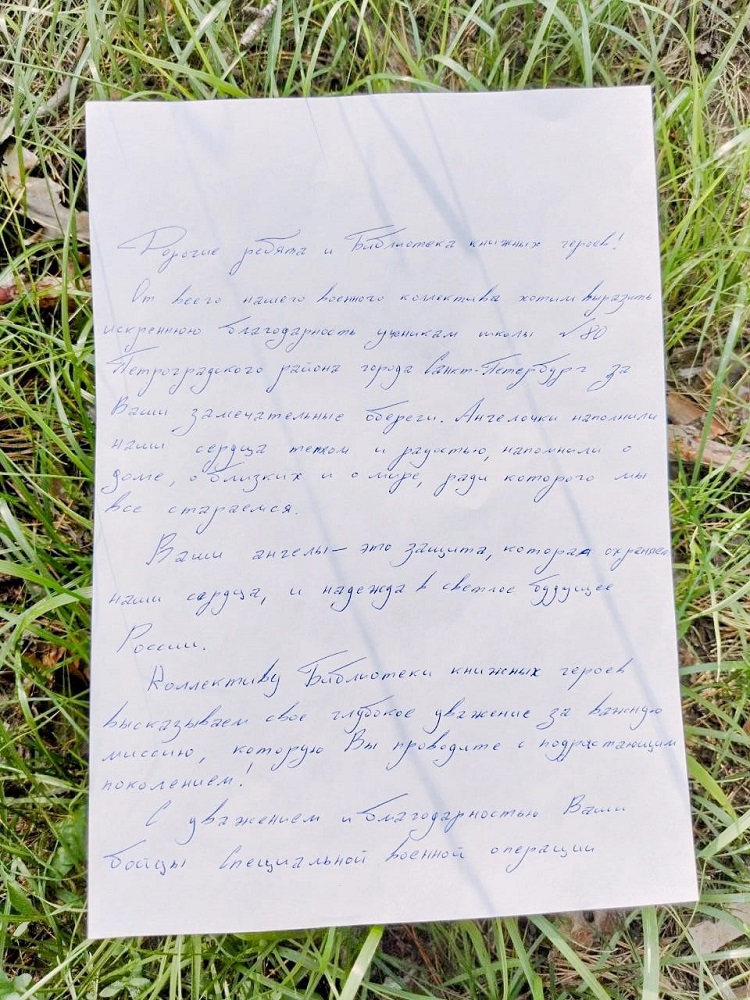 Дорогие ребята и Библиотека книжных героев!
От всего нашего военного коллектива хотим выразить
искреннюю благодарность ученикам школы №80
Петроградского района города Санкт-Петербург за
Ваши замечательные обереги. Ангелочки наполнили
наши сердца теплом и радостью, напомнили о
доме, о близких и о мире, ради которого мы
все стараемся.
Ваши ангелы – это защита, которая охраняет
наши сердца, и надежда в светлое будущее
России.
Коллективу Библиотеки книжных героев
высказываем свое глубокое уважение за важную
миссию, которую Вы проводите с подрастающим
поколением!
С уважением и благодарностью Ваши
бойцы Специальной военной операции